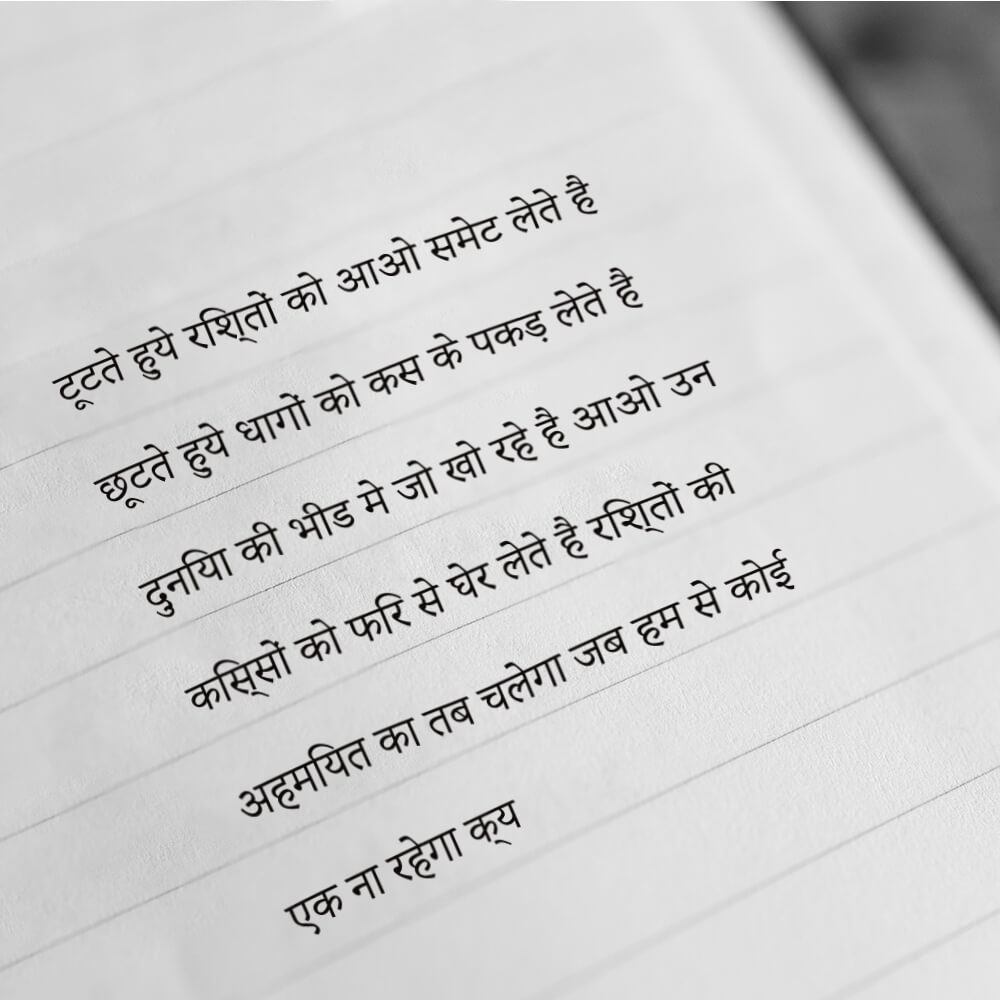 टूटते हुये रशि्तों को आओ समेट लेते है
छूटते हुये धागों को कस के पकड़ लेते है
दुनयिा की भीड मे जो खो रहे है आओ उन
कसि्सों को फरि से घेर लेते है रशि्तों की
अहमयित का तब चलेगा जब हम से कोई
एक ना रहेगा क्य